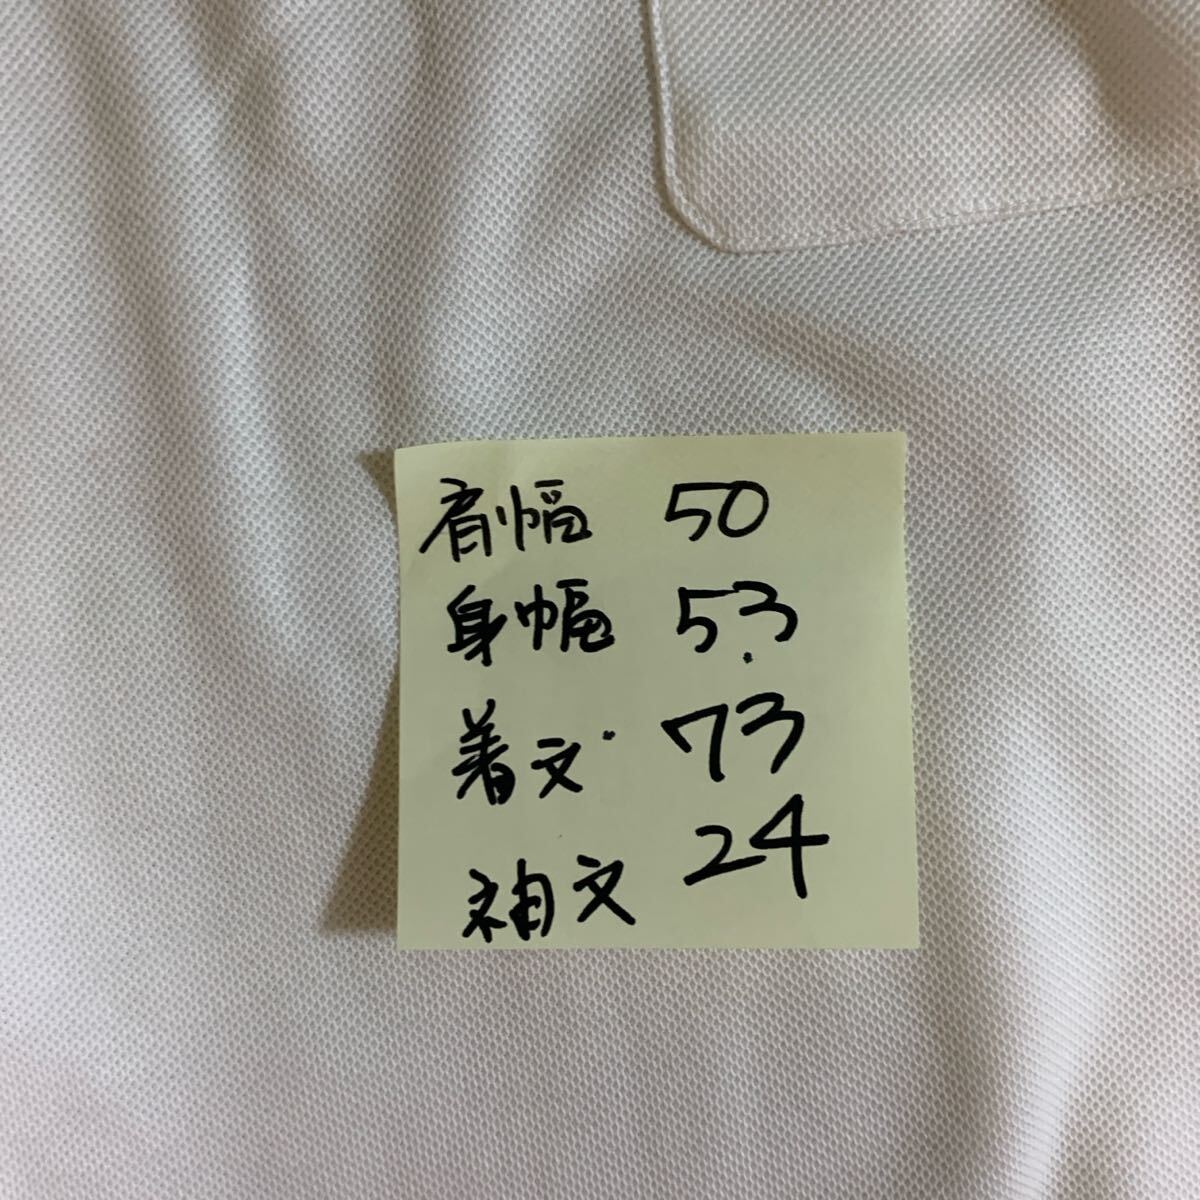 肩幅 50
身幅 53
着丈 73
袖丈 24